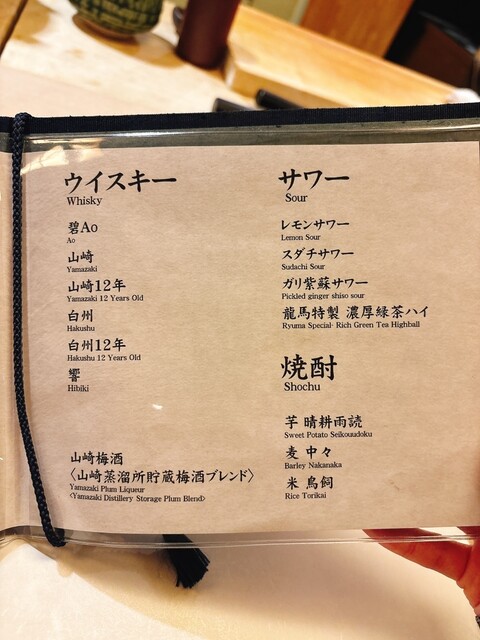 ウイスキー
Whisky
碧Ao
Ao
山崎
Yamazaki
山崎12年
Yamazaki 12 Years Old
白州
Hakushu
白州12年
Hakushu 12 Years Old
響
Hibiki
山崎梅酒
〈山崎蒸溜所貯蔵梅酒ブレンド〉
Yamazaki Plum Liqueur
<Yamazaki Distillery Storage Plum Blend>
サワー
Sour
レモンサワー
Lemon Sour
スダチサワー
Sudachi Sour
ガリ紫蘇サワー
Pickled ginger shiso sour
龍馬特製 濃厚緑茶ハイ
Ryuma Special· Rich Green Tea Highball
焼酎
Shochu
芋 晴耕雨読
Sweet Potato Seikouudoku
麦 中々
Barley Nakanaka
米 鳥飼
Rice Torikai